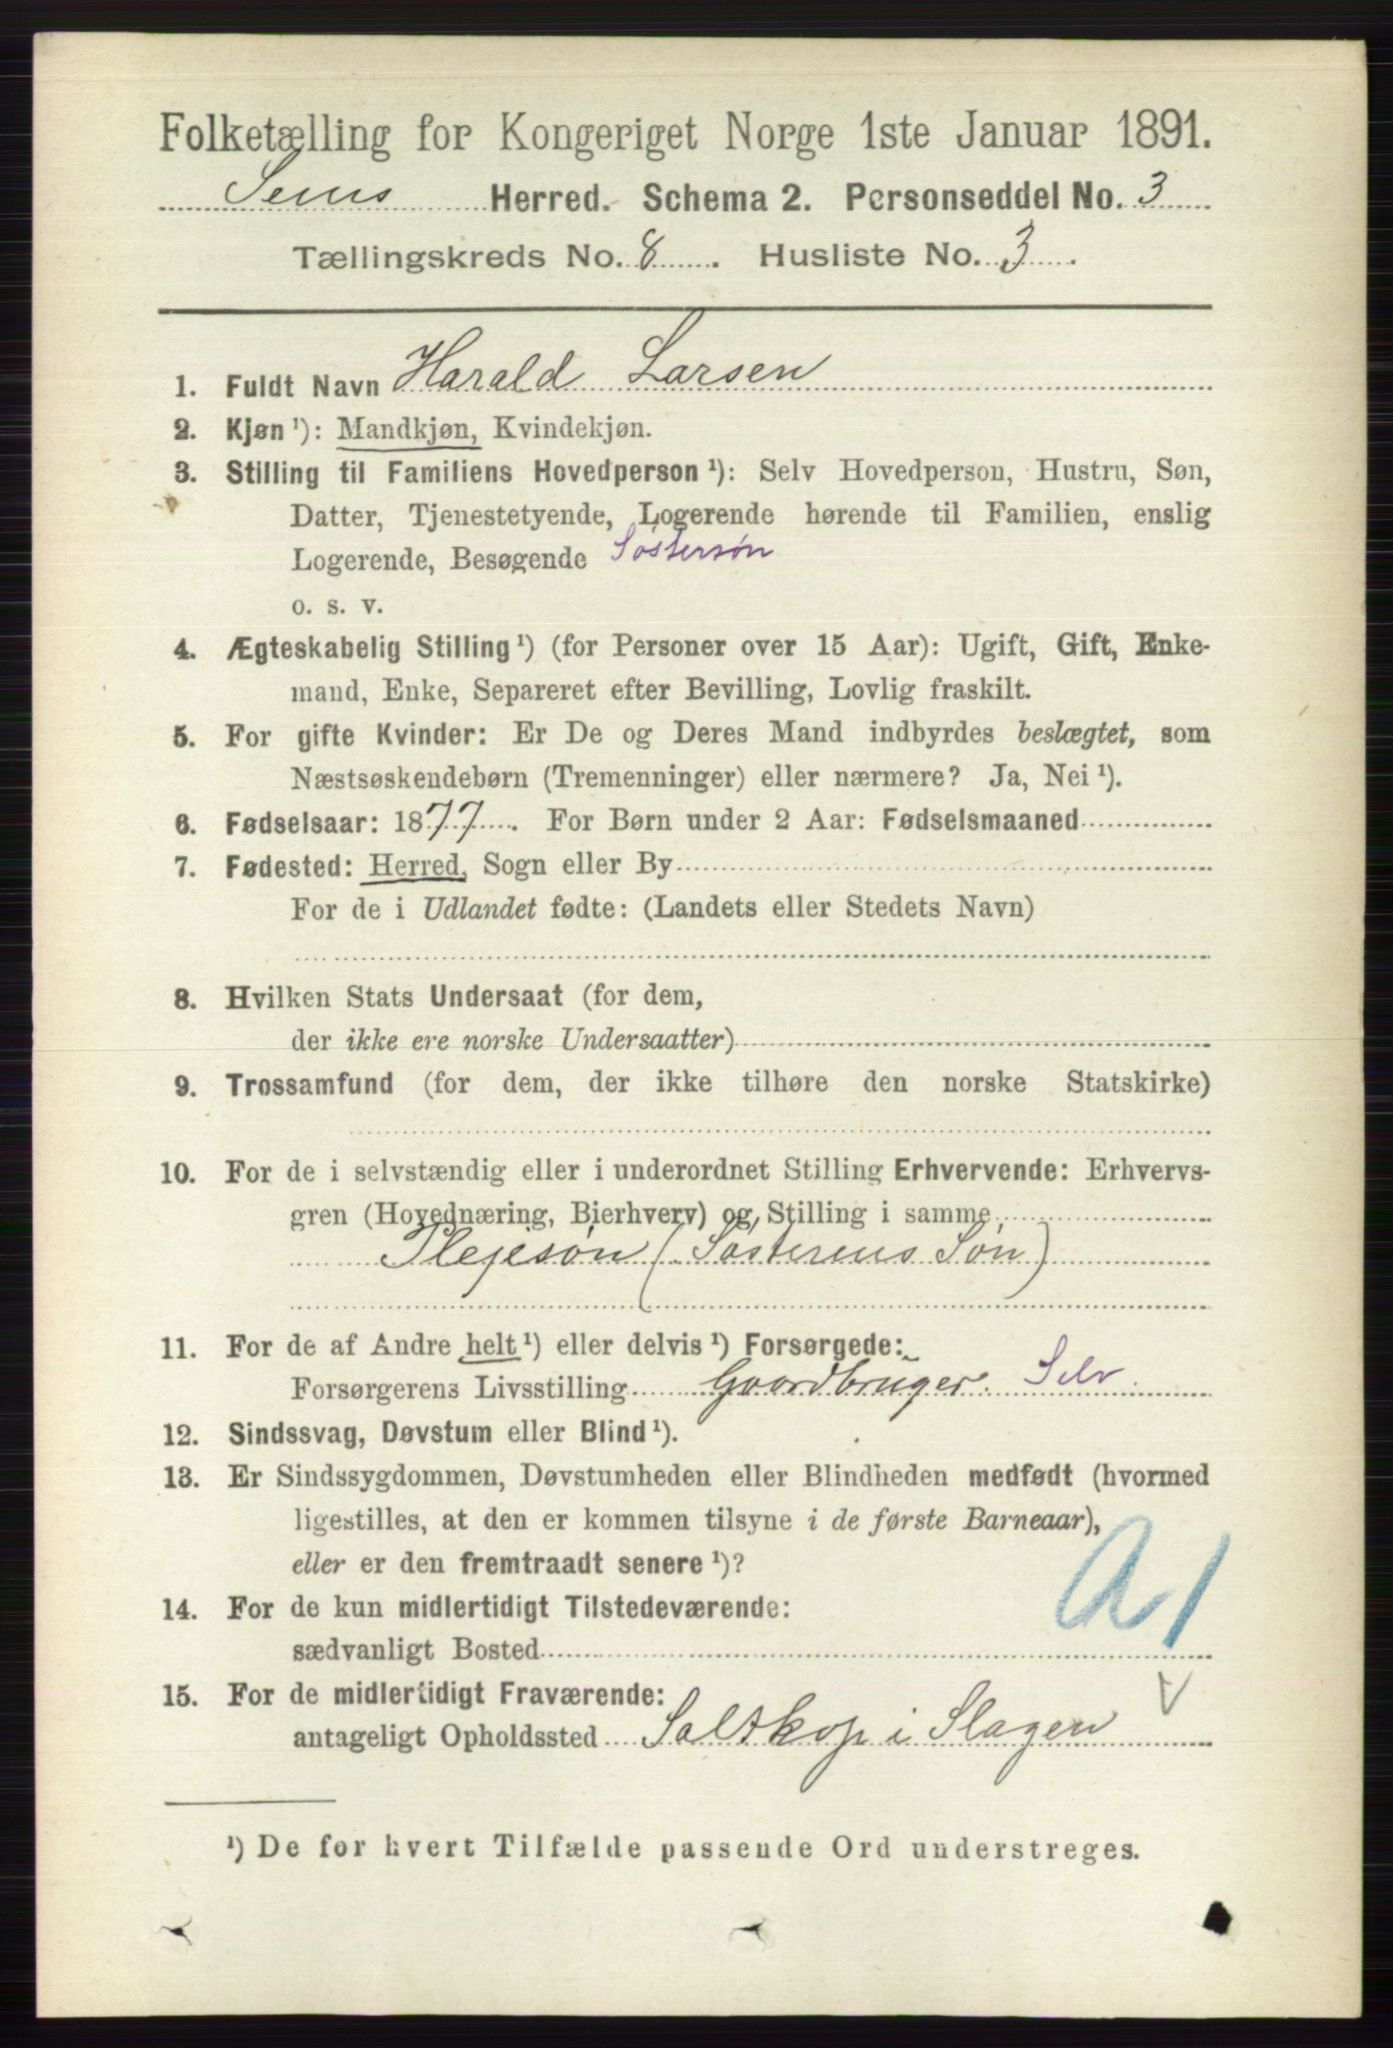 Folketælling for Kongeriget Norge 1ste Januar 1891.
Sems Herred. Schema 2. Personseddel No. 3
Tællingskreds No. 8. Husliste No. 3.
1. Fuldt Navn Harald Larsen
2. Kjøn ¹): Mandkjøn, Kvindekjøn.
3. Stilling til Familiens Hovedperson ¹): Selv Hovedperson, Hustru, Søn,
Datter, Tjenestetyende, Logerende hørende til Familien, enslig
Logerende, Besøgende Søstersøn
o. s. v.
4. Ægteskabelig Stilling ¹) (for Personer over 15 Aar): Ugift, Gift, Enke-
mand, Enke, Separeret efter Bevilling, Lovlig fraskilt.
5. For gifte Kvinder: Er De og Deres Mand indbyrdes beslægtet, som
Næstsøskendebørn (Tremenninger) eller nærmere? Ja, Nei ¹).
6. Fødselsaar: 1877. For Børn under 2 Aar: Fødselsmaaned
7. Fødested: Herred, Sogn eller By
For de i Udlandet fødte: (Landets eller Stedets Navn)
8. Hvilken Stats Undersaat (for dem,
der ikke ere norske Undersaatter)
9. Trossamfund (for dem, der ikke tilhøre den norske Statskirke)
10. For de i selvstændig eller i underordnet Stilling Erhvervende: Erhvervs-
gren (Hovednæring, Bierhverv) og Stilling i samme
Plejesøn (Søsterens Søn)
11. For de af Andre helt ¹) eller delvis ¹) Forsørgede:
Forsørgerens Livsstilling Gaardbruger. Selv.
12. Sindssvag, Døvstum eller Blind ¹).
13. Er Sindssygdommen, Døvstumheden eller Blindheden medfødt (hvormed
ligestilles, at den er kommen tilsyne i de første Barneaar),
eller er den fremtraadt senere ¹)?
14. For de kun midlertidigt Tilstedeværende:
sædvanligt Bosted
a 1
15. For de midlertidigt Fraværende:
antageligt Opholdssted Saltkop i Slagen
¹) De for hvert Tilfælde passende Ord understreges.